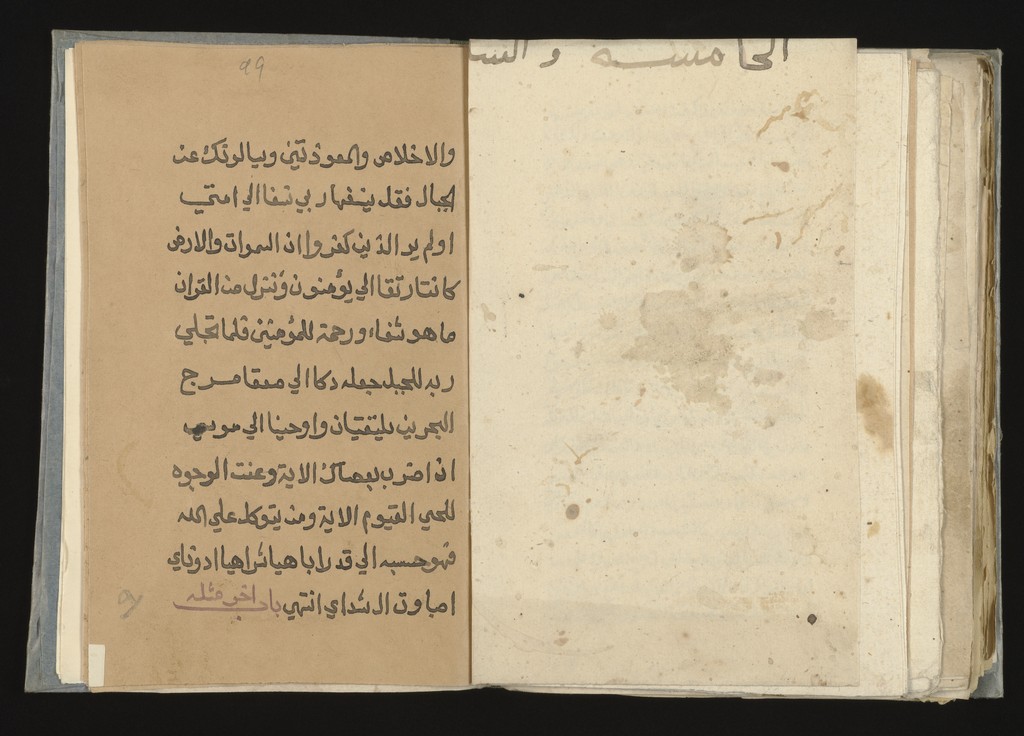 الخامسة و الست
99
والاخلاص والمعوذتين ويسالونك عن
الجبال فقل ينسفها ربي نسفا الي امتي
اولم ير الذين كفروا ان السموات والارض
كانتا رتقا الي يؤمنون وننزل من القران
ما هو شفاء ورحمة للمؤمنين فلما تجلي
ربه للجبل جعله دكا الي صعقا مرج
البحرين يلتقيان واوحينا الي موسي
ان اضرب بعصاك الاية وعنت الوجوه
للحي القيوم الاية ومن يتوكل علي الله
فهو حسبه الي قدرا باهيا شراهيا ادوناي
اصباوت ال شداي انتهي باب اخر مثله